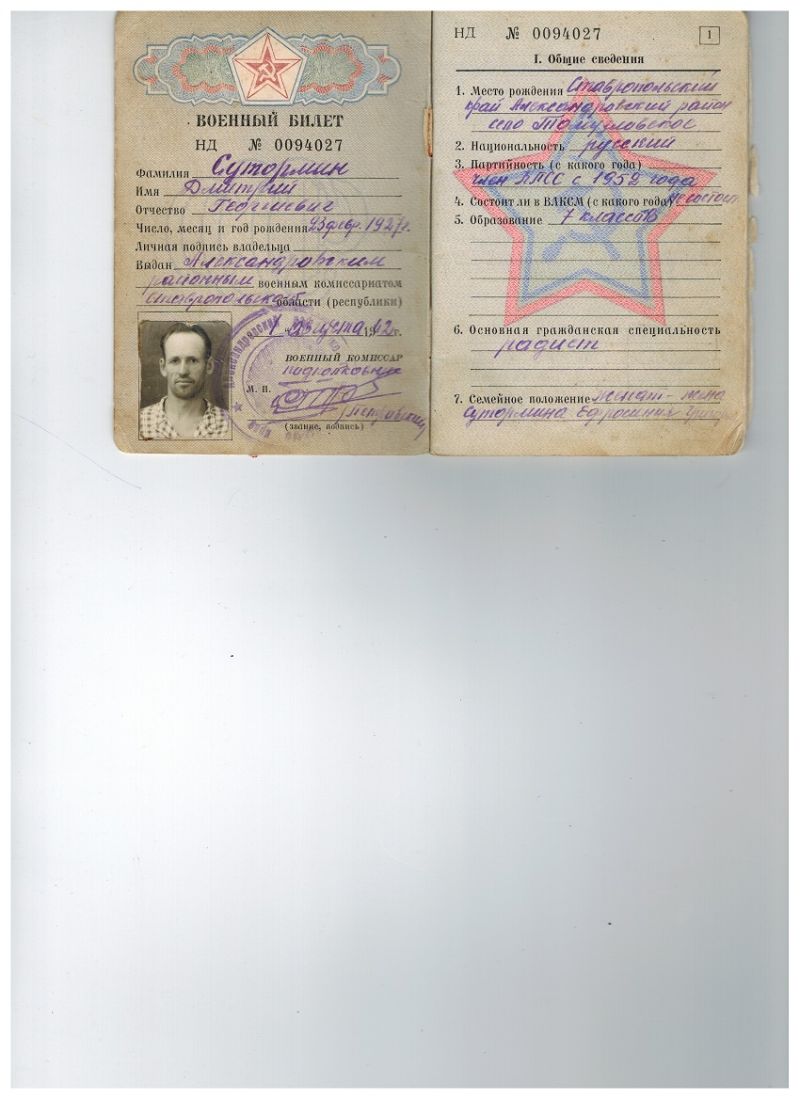 ВОЕННЫЙ БИЛЕТ
НД № 0094027
Фамилия Сутормин
Имя Дмитрий
Отчество Георгиевич
Число, месяц и год рождения 23 февр. 1927 г.
Личная подпись владельца
Выдан Александровским
районным военным комиссариатом
Ставропольской области (республики)
августа 1962 г.
ВОЕННЫЙ КОМИССАР
подполковник
М. П.
(звание, подпись)
НД № 0094027 1
I. Общие сведения
1. Место рождения Ставропольский
край Александровский район
село Томузловское
2. Национальность русский
3. Партийность (с какого года)
член КПСС с 1952 года
4. Состоит ли в ВЛКСМ (с какого года) не состоит
5. Образование 7 классов
6. Основная гражданская специальность
радист
7. Семейное положение женат - жена
Сутормина Ефросиния